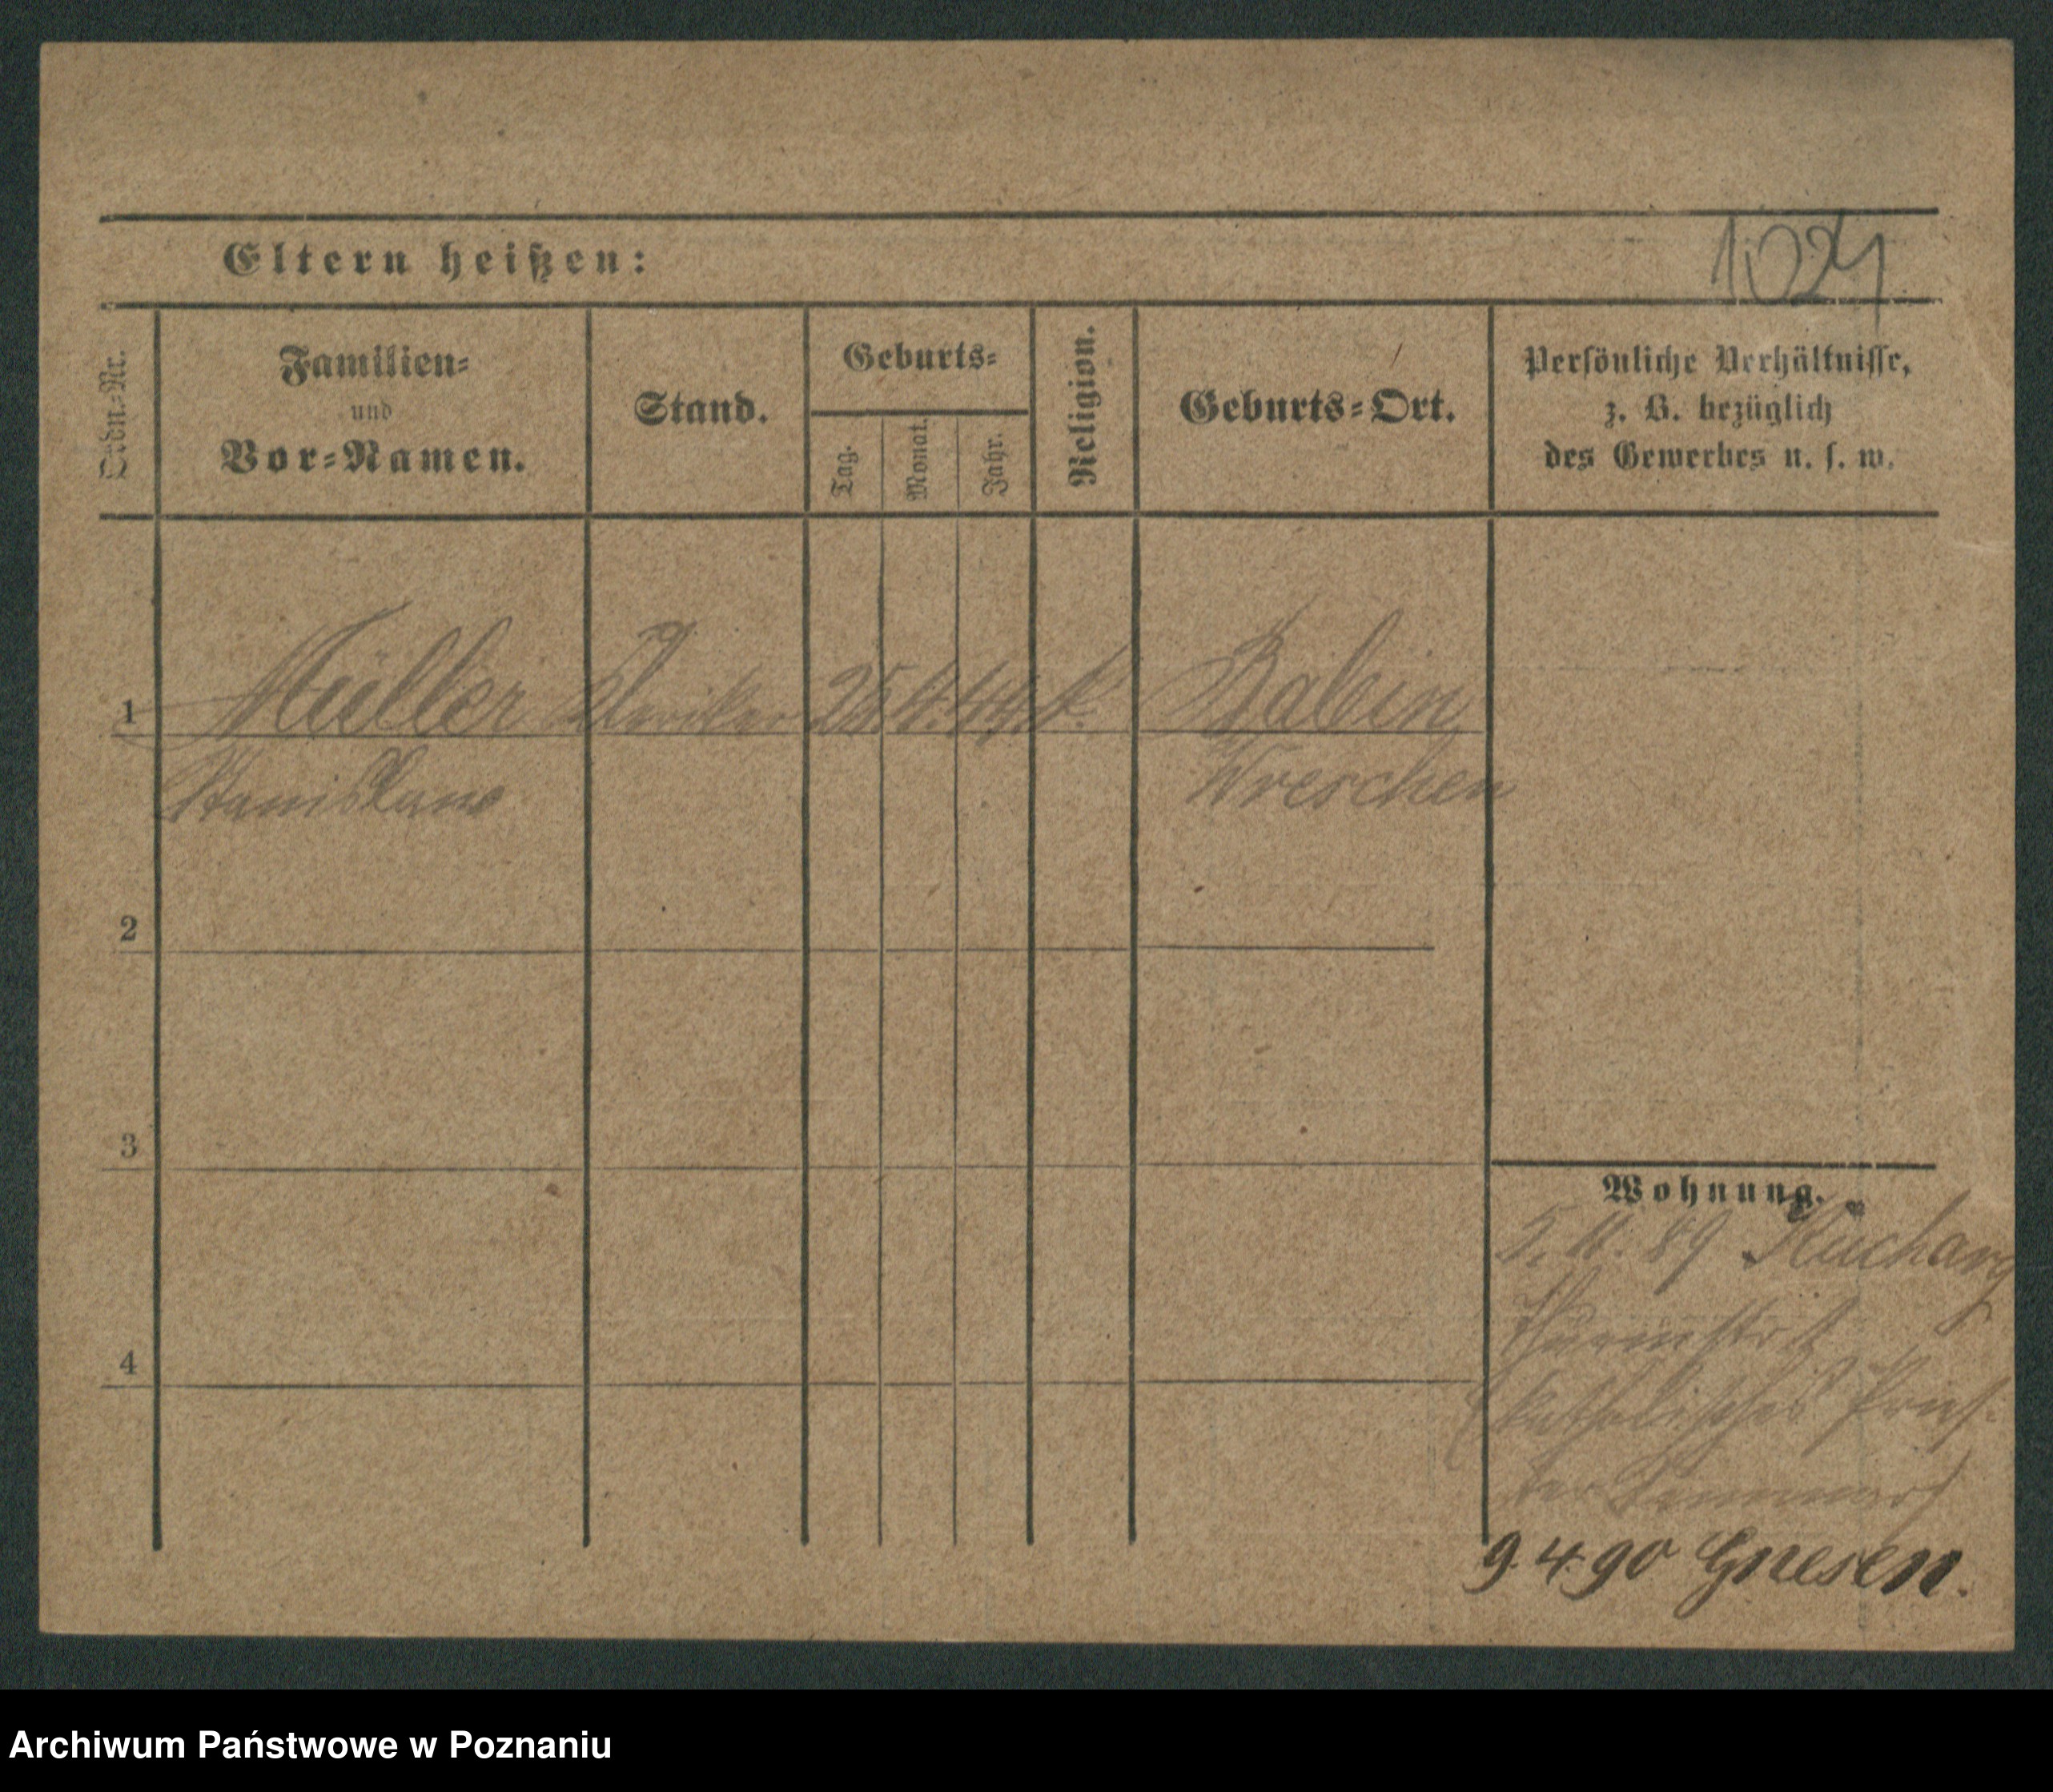 1024
Eltern heißen:
Ordn.-Nr.
Familien-
und
Vor-Namen.
Stand.
Geburts-
Tag.
Monat.
Jahr.
Religion.
Geburts-Ort.
Persönliche Verhältnisse,
z. B. bezüglich
des Gewerbes u. s. w.
1
Müller Kleriker 25 4. k. Babin
Stanislaus
Wreschen
2
3
4
Wohnung.
5. 11. 89
(katholisches Pries-
ter Seminar)
9.4.90 Gnesen.
Archiwum Państwowe w Poznaniu